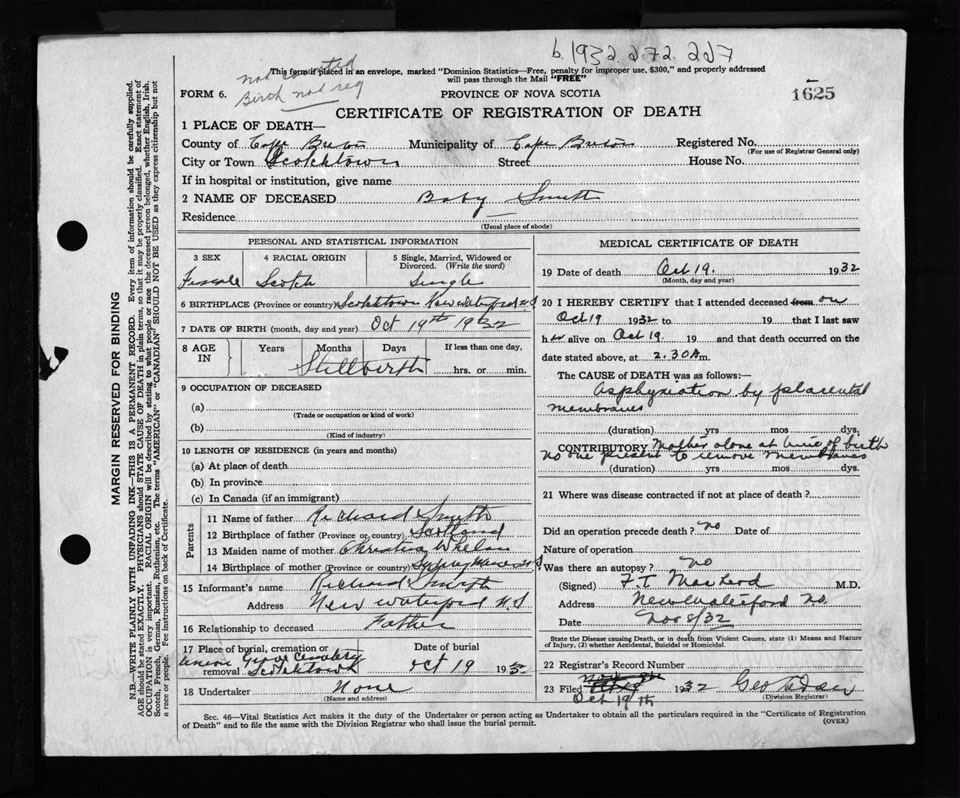 b. 1932. 272. 227
This form if placed in an envelope, marked "Dominion Statistics—Free, penalty for improper use, $300," and properly addressed
will pass through the Mail "FREE"
FORM 6. Birth not reg
PROVINCE OF NOVA SCOTIA
1625
CERTIFICATE OF REGISTRATION OF DEATH
1 PLACE OF DEATH—
County of Cape Breton Municipality of Cape Breton Registered No.
(For use of Registrar General only)
City or Town Scotchtown Street House No.
If in hospital or institution, give name
2 NAME OF DECEASED Baby Smith
Residence
(Usual place of abode)
PERSONAL AND STATISTICAL INFORMATION
3 SEX 4 RACIAL ORIGIN 5 Single, Married, Widowed or
Divorced. (Write the word)
Female Scotch Single
6 BIRTHPLACE (Province or country) Scotchtown New Waterford N S
7 DATE OF BIRTH (month, day and year) Oct 19th 1932
8 AGE IN Years Months Days If less than one day,
Stillbirth hrs. or min.
9 OCCUPATION OF DECEASED
(a)
(Trade or occupation or kind of work)
(b)
(Kind of industry)
10 LENGTH OF RESIDENCE (in years and months)
(a) At place of death
(b) In province
(c) In Canada (if an immigrant)
Parents
11 Name of father Richard Smith
12 Birthplace of father (Province or country) Scotland
13 Maiden name of mother Christina Whelan
14 Birthplace of mother (Province or country) Sydney Mines N S
15 Informant's name Richard Smith
Address New Waterford N.S
16 Relationship to deceased Father
17 Place of burial, cremation or Date of burial
Union Grove Cemetery
removal Scotchtown Oct 19 1932
18 Undertaker None
(Name and address)
MEDICAL CERTIFICATE OF DEATH
19 Date of death Oct 19. 1932
(Month, day and year)
20 I HEREBY CERTIFY that I attended deceased from on
Oct 19 1932 to 19 that I last saw
her alive on Oct 19. 19 and that death occurred on the
date stated above, at 2.30 A m.
The CAUSE of DEATH was as follows:—
Asphyxiation by placental
membranes
(duration) yrs mos dys.
CONTRIBUTORY Mother alone at time of birth
no one present to remove membranes
(duration) yrs. mos dys.
21 Where was disease contracted if not at place of death?
Did an operation precede death? no Date of
Nature of operation
Was there an autopsy? no
(Signed) F. T. MacLeod M.D.
Address New Waterford N.S.
Date Nov 8/32
State the Disease causing Death, or in death from Violent Causes, state (1) Means and Nature
of Injury, (2) whether Accidental, Suicidal or Homicidal.
22 Registrar's Record Number
23 Filed 1932
(Division Registrar)
Oct 19th
Sec. 46—Vital Statistics Act makes it the duty of the Undertaker or person acting as Undertaker to obtain all the particulars required in the "Certificate of Registration
of Death" and to file the same with the Division Registrar who shall issue the burial permit.
(OVER)
MARGIN RESERVED FOR BINDING
N.B.—WRITE PLAINLY WITH UNFADING INK—THIS IS A PERMANENT RECORD. Every item of information should be carefully supplied.
AGE should be stated EXACTLY. PHYSICIANS should STATE CAUSE OF DEATH in plain terms, so that it may be properly classified. Exact statement of
OCCUPATION is very important. RACIAL ORIGIN will be described by stating to what people or race the deceased person belonged, whether English, Irish,
Scotch, French, German, Russian, Ruthenian, etc. The terms "AMERICAN" or "CANADIAN" SHOULD NOT BE USED as they express citizenship but not
a race or people. Fee instructions on back of Certificate.